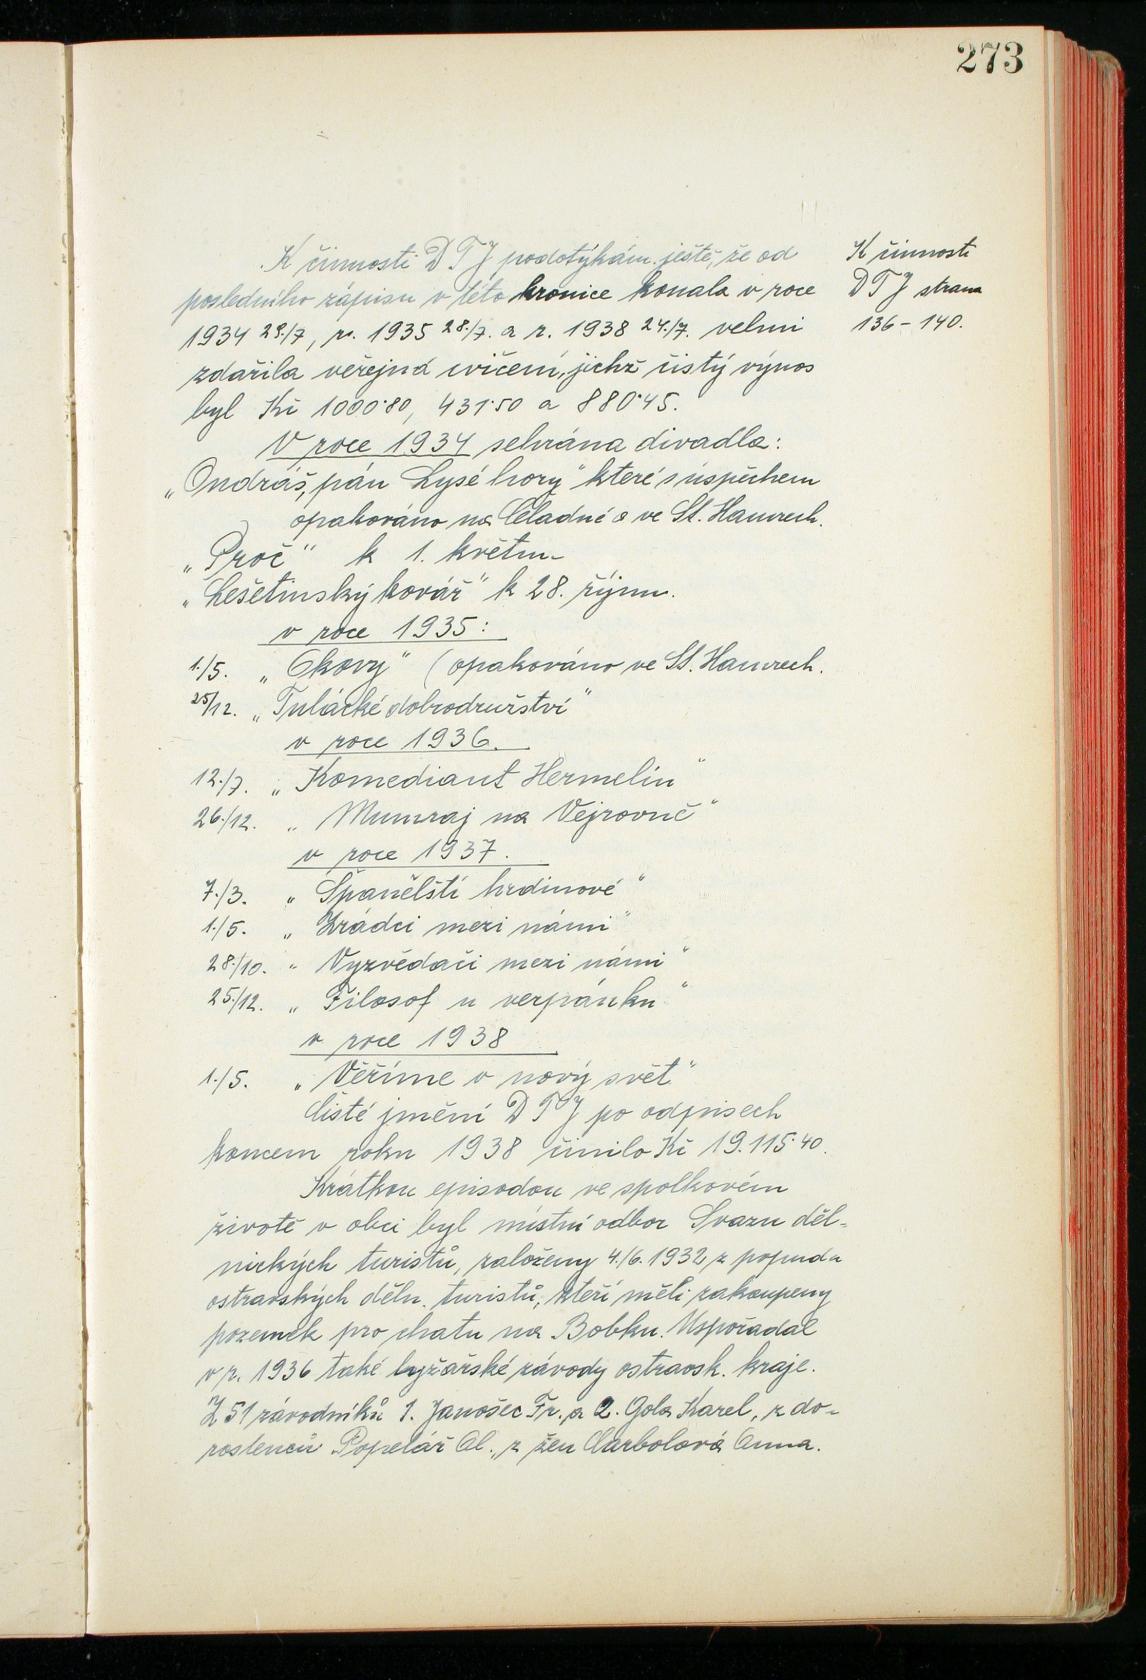 273
K činnosti DTJ podotýkám ještě, že od
posledního zápisu v této kronice konala v roce
1934 29./7, r. 1935 28./7. a r. 1938 24./7. velmi
zdařila veřejná cvičení, jichž čistý výnos
byl Kč 1000·80, 431·50 a 880·45.
V roce 1934 sehrána divadla:
„Ondráš, pán Lysé hory" které s úspěchem
opakováno na Čeladné a ve St. Hamrech.
„Proč" k 1. květnu
„Lešetinský kovář" k 28. říjnu.
v roce 1935:
1./5. „Okovy" (opakováno ve St. Hamrech.
25/12. „Tulácké dobrodružství"
v roce 1936.
12./7. „Komediant Hermelin"
26./12. „Mumraj na Vejrovně"
v roce 1937.
7./3. „Španělští hrdinové"
1./5. „Zrádci mezi námi"
28./10. „Vyzvědači mezi námi"
25./12. „Filosof u verpánku"
v roce 1938
1./5. „Věříme v nový svět"
Čisté jmění DTJ po odpisech
koncem roku 1938 činilo Kč 19.115·40.
Krátkou episodou ve spolkovém
životě v obci byl místní odbor Svazu děl-
nických turistů, založený 4./6. 1932 z popudu
ostravských děln. turistů, kteří měli zakoupeny
pozemek pro chatu na Bobku. Uspořádal
v r. 1936 také lyžařské závody ostravsk. kraje.
Z 51 závodníků 1. Janošec Fr., a 2. Gola Karel, z do-
rostenců Popelář Al., z žen Čarbolová Anna.
K činnosti
DTJ strana
136 – 140.